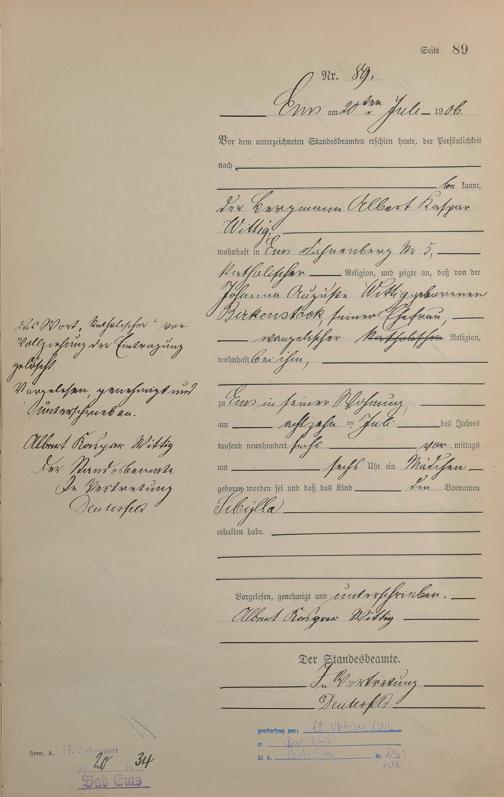 Seite 89
Nr. 89.
Ems am 20ten Juli 1906.
Vor dem unterzeichneten Standesbeamten erschien heute, der Persönlichkeit
nach
be kannt,
der Bergmann Albert Kaspar
Wittig,
wohnhaft in Ems Nr. 5,
katholischer Religion, und zeigte an, daß von der
Johanna Auguste Wittig geborenen
Birkenstock, seiner Ehefrau,
evangelischer katholischen Religion,
wohnhaft bei ihm,
zu Ems in seiner Wohnung,
am achtzehn ten Juli des Jahres
tausend neunhundert sechs vor mittags
um sechs Uhr ein Mädchen
geboren worden sei und daß das Kind den Vornamen
Sibylla
erhalten habe.
Vorgelesen, genehmigt und unterschrieben.
Albert Kaspar Wittig
Der Standesbeamte.
In Vertretung
Das Wort „katholischer" vor
Vollziehung der Eintragung
gelöscht
Vorgelesen, genehmigt und
Unterschrieben.
Albert Kaspar Wittig
Der Standesbeamte
In Vertretung
H.
Nr. 20 34
Bad Ems
gestorben am: 28. Oktober
in Bad Ems
Nr.